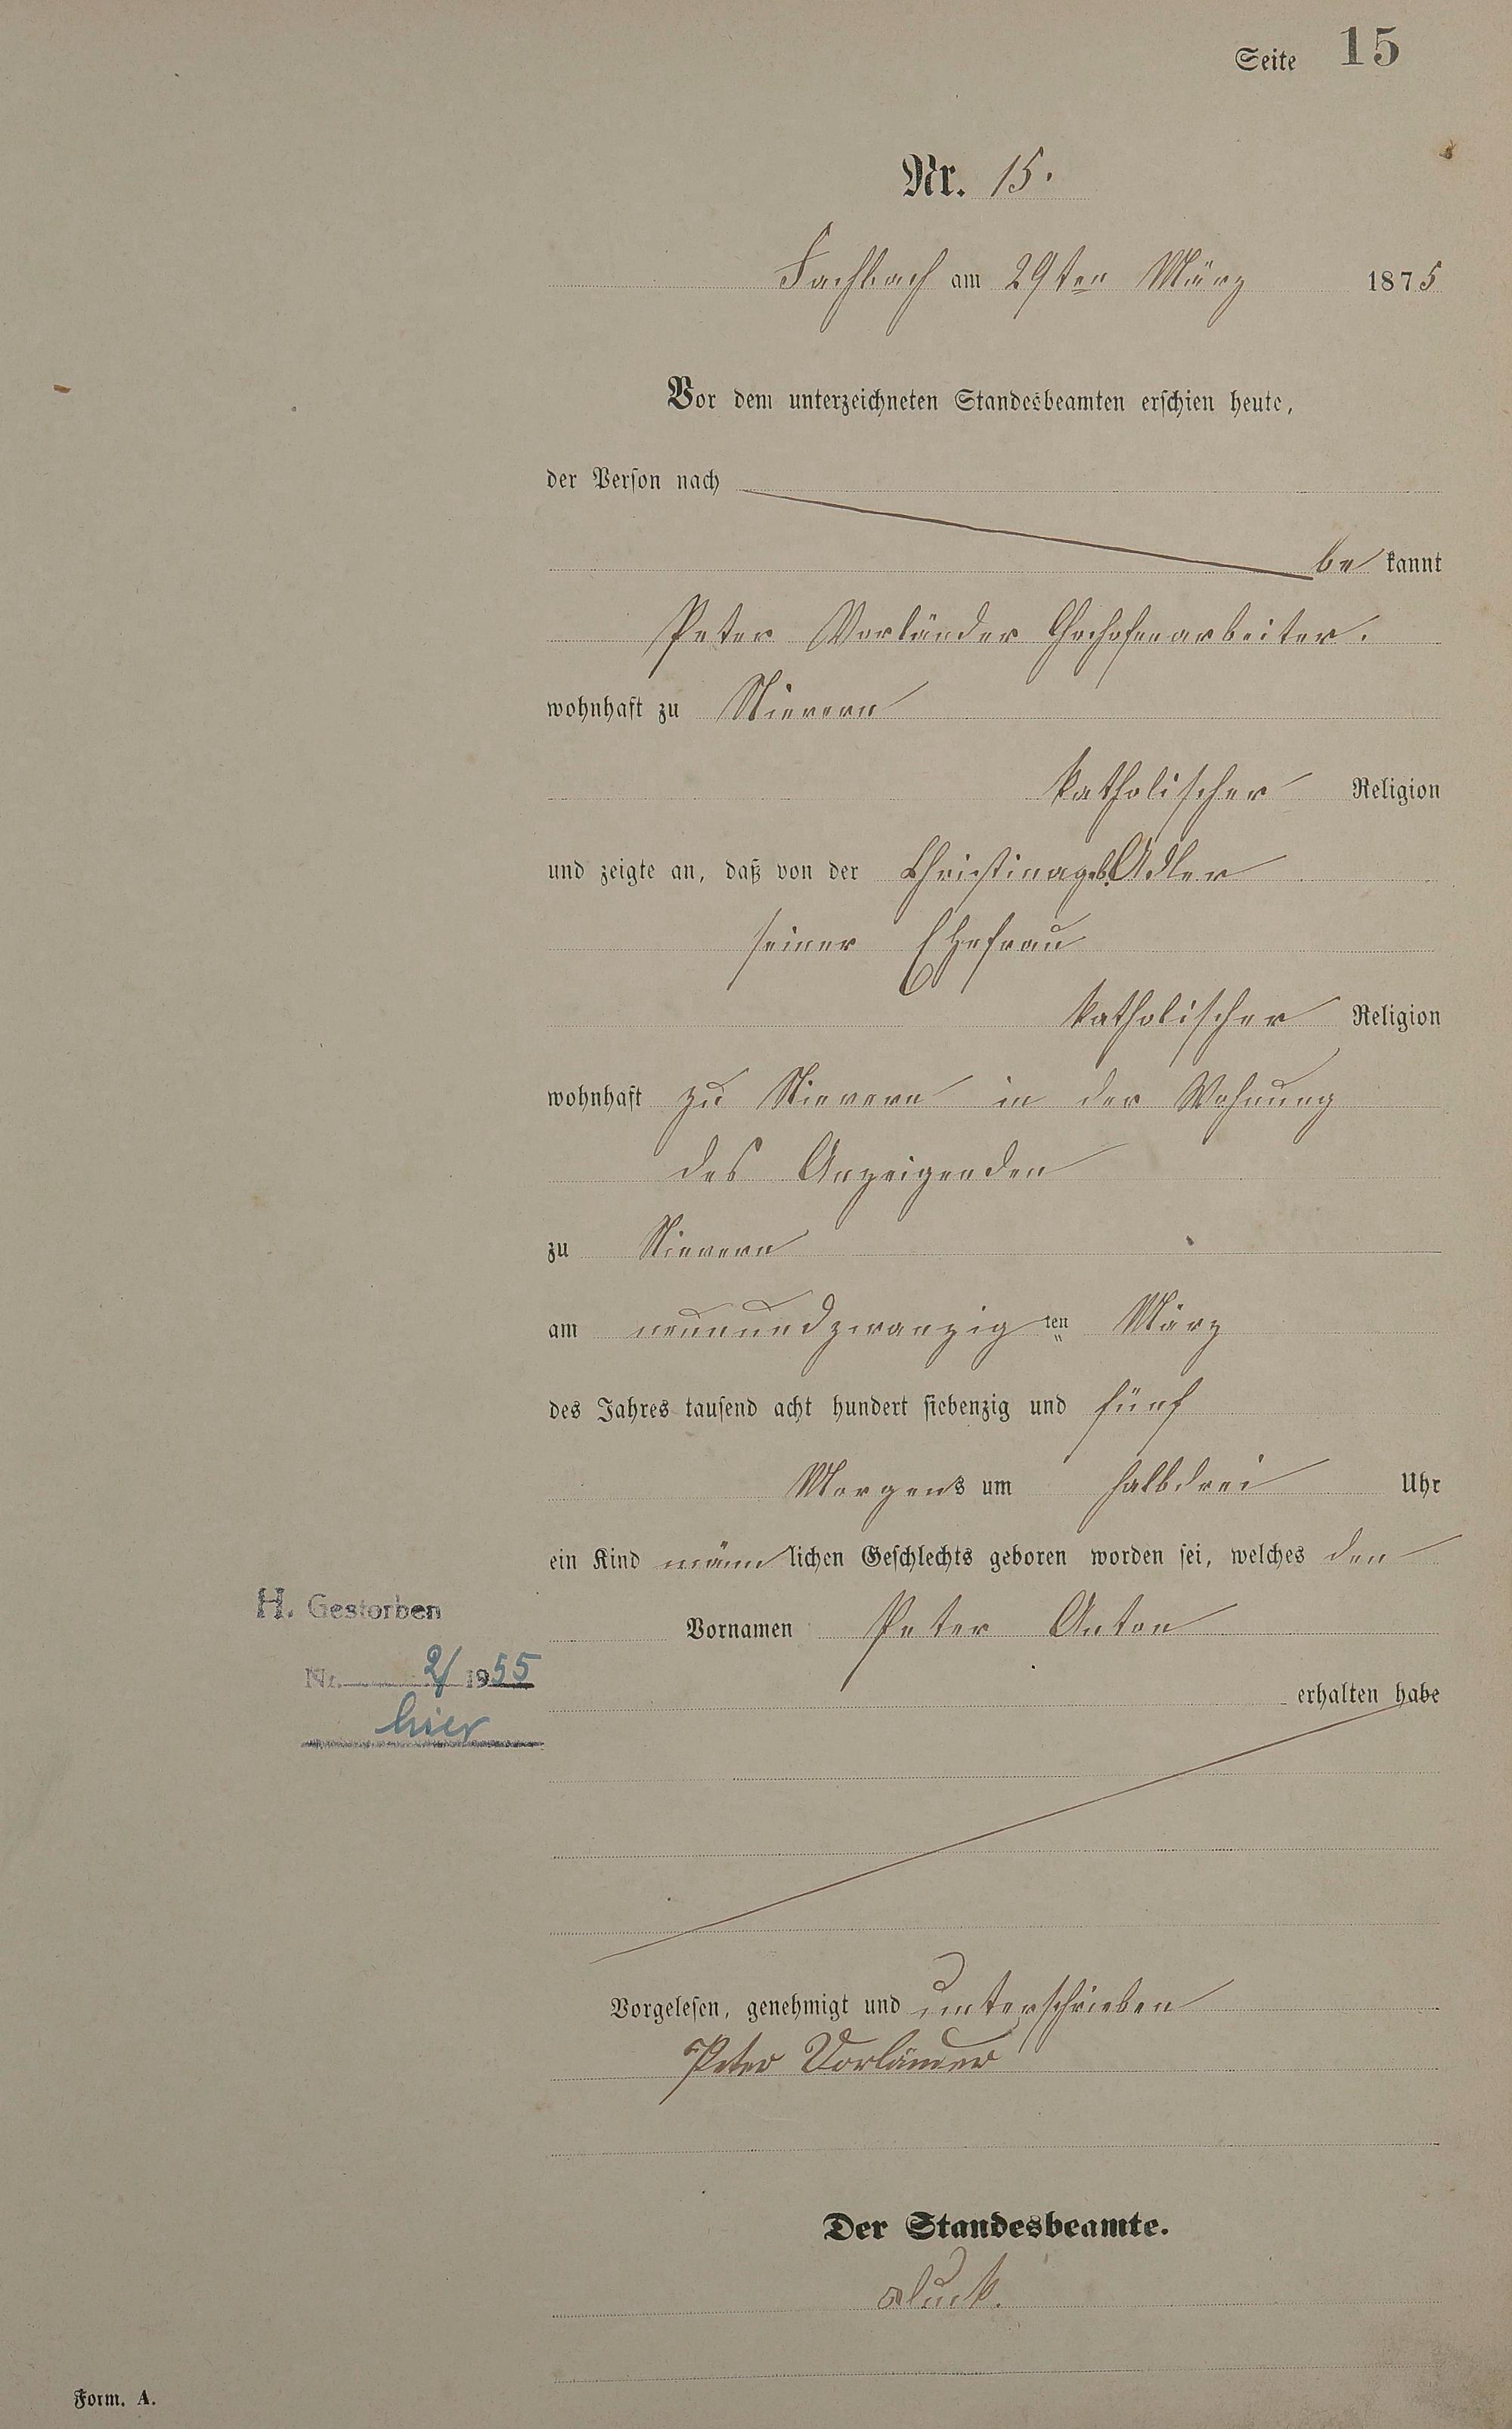 Seite 15
Nr. 15.
Fachbach am 29ten März 1875
Vor dem unterzeichneten Standesbeamten erschien heute,
der Person nach
be kannt
Peter Vorländer Hochofenarbeiter.
wohnhaft zu Nievern
katholischer Religion
und zeigte an, daß von der Christina geb. Adler
seiner Ehefrau
katholischer Religion
wohnhaft zu Nievern in der Wohnung
des Anzeigenden
zu Nievern
am neunundzwanzig ten März
des Jahres tausend acht hundert siebenzig und fünf
Morgens um halbdrei Uhr
ein Kind männlichen Geschlechts geboren worden sei, welches den
H. Gestorben
Vornamen Peter Anton
Nr. 2/1955
erhalten habe
hier
Vorgelesen, genehmigt und unterschrieben
Peter Vorländer
Der Standesbeamte.
Form. A.